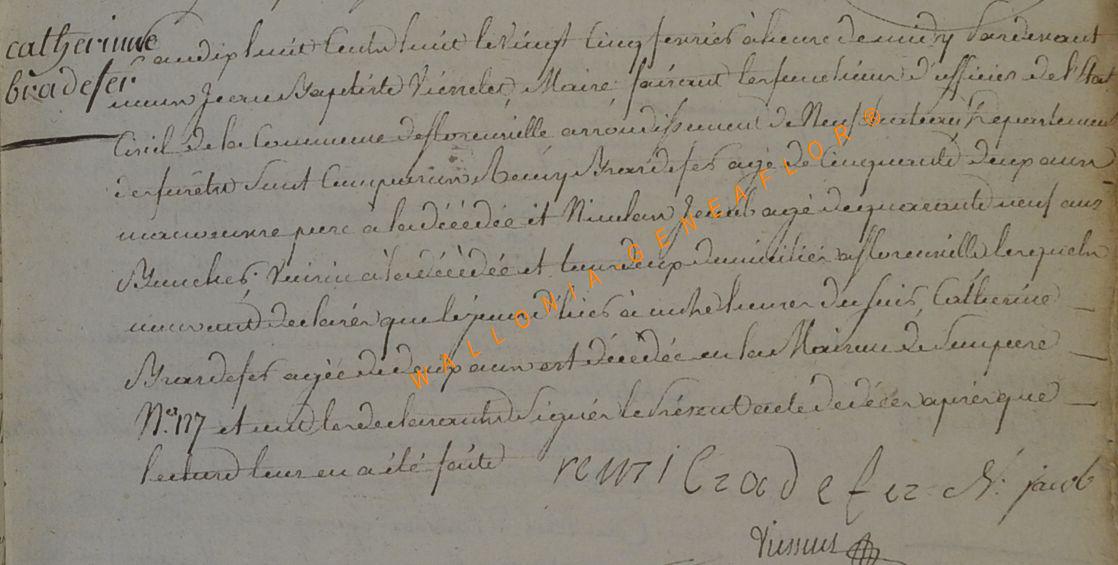 catherinne
bradefer
L'an dix huit Cents huit le Vingt Cinq fevrier à heure de midy Pardevant
nous Jean Baptiste Maire faisant les fonctions d'officier de l'Etat
Civil de la Commune de florenville arrondissement de Neufchateau departement
des forêts sont Comparus Remy Bradefer agé de Cinquante deux ans
manoeuvre pere à la décédée et Nicolas Jacob agé de quarante neuf ans
Voisin à la décédée et tous deux domiciliés à florenville lesquels
nous ont declarés que le jour d'hier à huit heures du soir Catherine
Bradefer agée de deux ans est décédée en la Maison de Son pere
N.º 117 et ont les declarants Signés le Présent acte de décés aprés que
lecture leur en a été faite remi bradefer N. jacob
WALLONIA GENEAFLOR ®